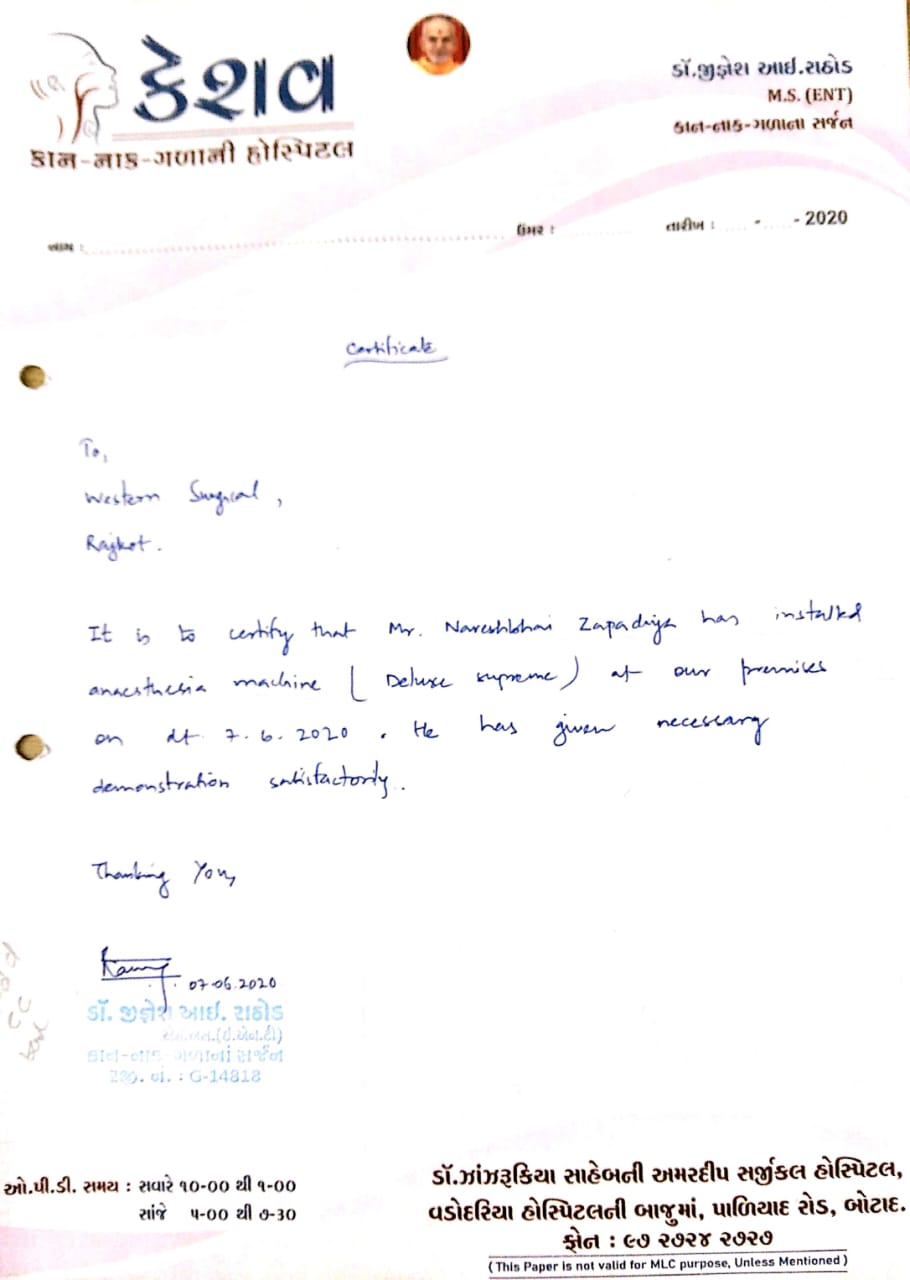 કેશવ
કાન-નાક-ગળાની હોસ્પિટલ
ડૉ.જીજ્ઞેશ આઈ.રાઠોડ
M.S. (ENT)
કાન-નાક-ગળાના સર્જન
નામ : ઉંમર : તારીખ : ..... - ..... - 2020
Certificate
To,
Western Surgical,
Rajkot.
It is to certify that Mr. Nareshbhai Zapadiya has installed
anaesthesia machine ( Deluxe supreme) at our premises
on dt. 7.6.2020. He has given necessary
demonstration satisfactorily.
Thanking You,
07.06.2020
ડૉ. જીજ્ઞેશ આઈ. રાઠોડ
એમ.એસ.(ઈ.એન.ટી)
કાન-નાક-ગળાનાં સર્જન
રજી. નં. : G-14818
ઓ.પી.ડી. સમય : સવારે ૧૦-૦૦ થી ૧-૦૦
સાંજે ૫-૦૦ થી ૭-૩૦
ડૉ.ઝાંઝરૂકિયા સાહેબની અમરદીપ સર્જીકલ હોસ્પિટલ,
વડોદરિયા હોસ્પિટલની બાજુમાં, પાળિયાદ રોડ, બોટાદ.
ફોન : ૯૭ ૨૭૨૪ ૨૭૨૭
(This Paper is not valid for MLC purpose, Unless Mentioned)